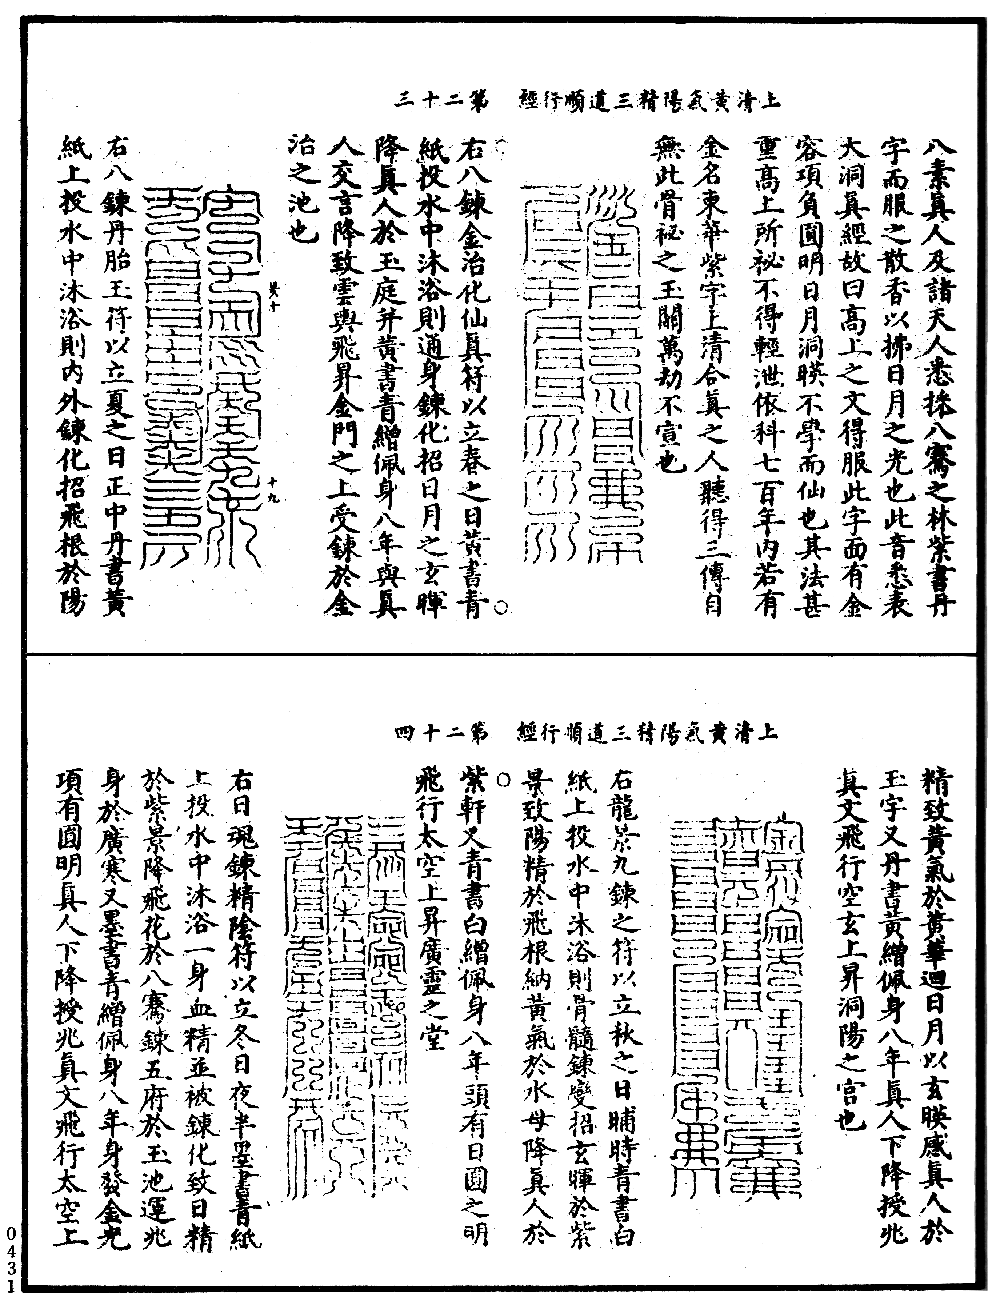 上清黃氣陽精三道順行經　第二十三
八素真人及諸天人悉採八騫之林紫書丹
字而服之散香以拂日月之光也此音悉表
大洞真經故曰高上之文得服此字面有金
容項負圓明日月洞暎不學而仙也其法甚
重高上所祕不得輕泄依科七百年內若有
金名東華紫字上清合真之人聽得三傳自
無此骨祕之玉關萬劫不宣也
右八鍊金治化仙真符以立春之日黃書青
紙投水中沐浴則通身鍊化招日月之玄暉
降真人於玉庭并黃書青繒佩身八年與真
人交言降致雲輿飛昇金門之上受鍊於金
治之池也
十九
右八鍊丹胎玉符以立夏之日正中丹書黃
紙上投水中沐浴則內外鍊化招飛根於陽
上清黃氣陽精三道順行經　第二十四
精致黃氣於黃華迴日月以玄暎感真人於
玉字又丹書黃繒佩身八年真人下降授兆
真文飛行空玄上昇洞陽之宮也
右龍景九鍊之符以立秋之日晡時青書白
紙上投水中沐浴則骨髓鍊變招玄暉於紫
景致陽精於飛根納黃氣於水母降真人於
紫軒又青書白繒佩身八年頭有日圓之明
飛行太空上昇廣靈之堂
右日魂鍊精陰符以立冬日夜半墨書青紙
上投水中沐浴一身血精並被鍊化致日精
於紫景降飛花於八騫鍊五府於玉池運兆
身於廣寒又墨書青繒佩身八年身發金光
項有圓明真人下降授兆真文飛行太空上
0431